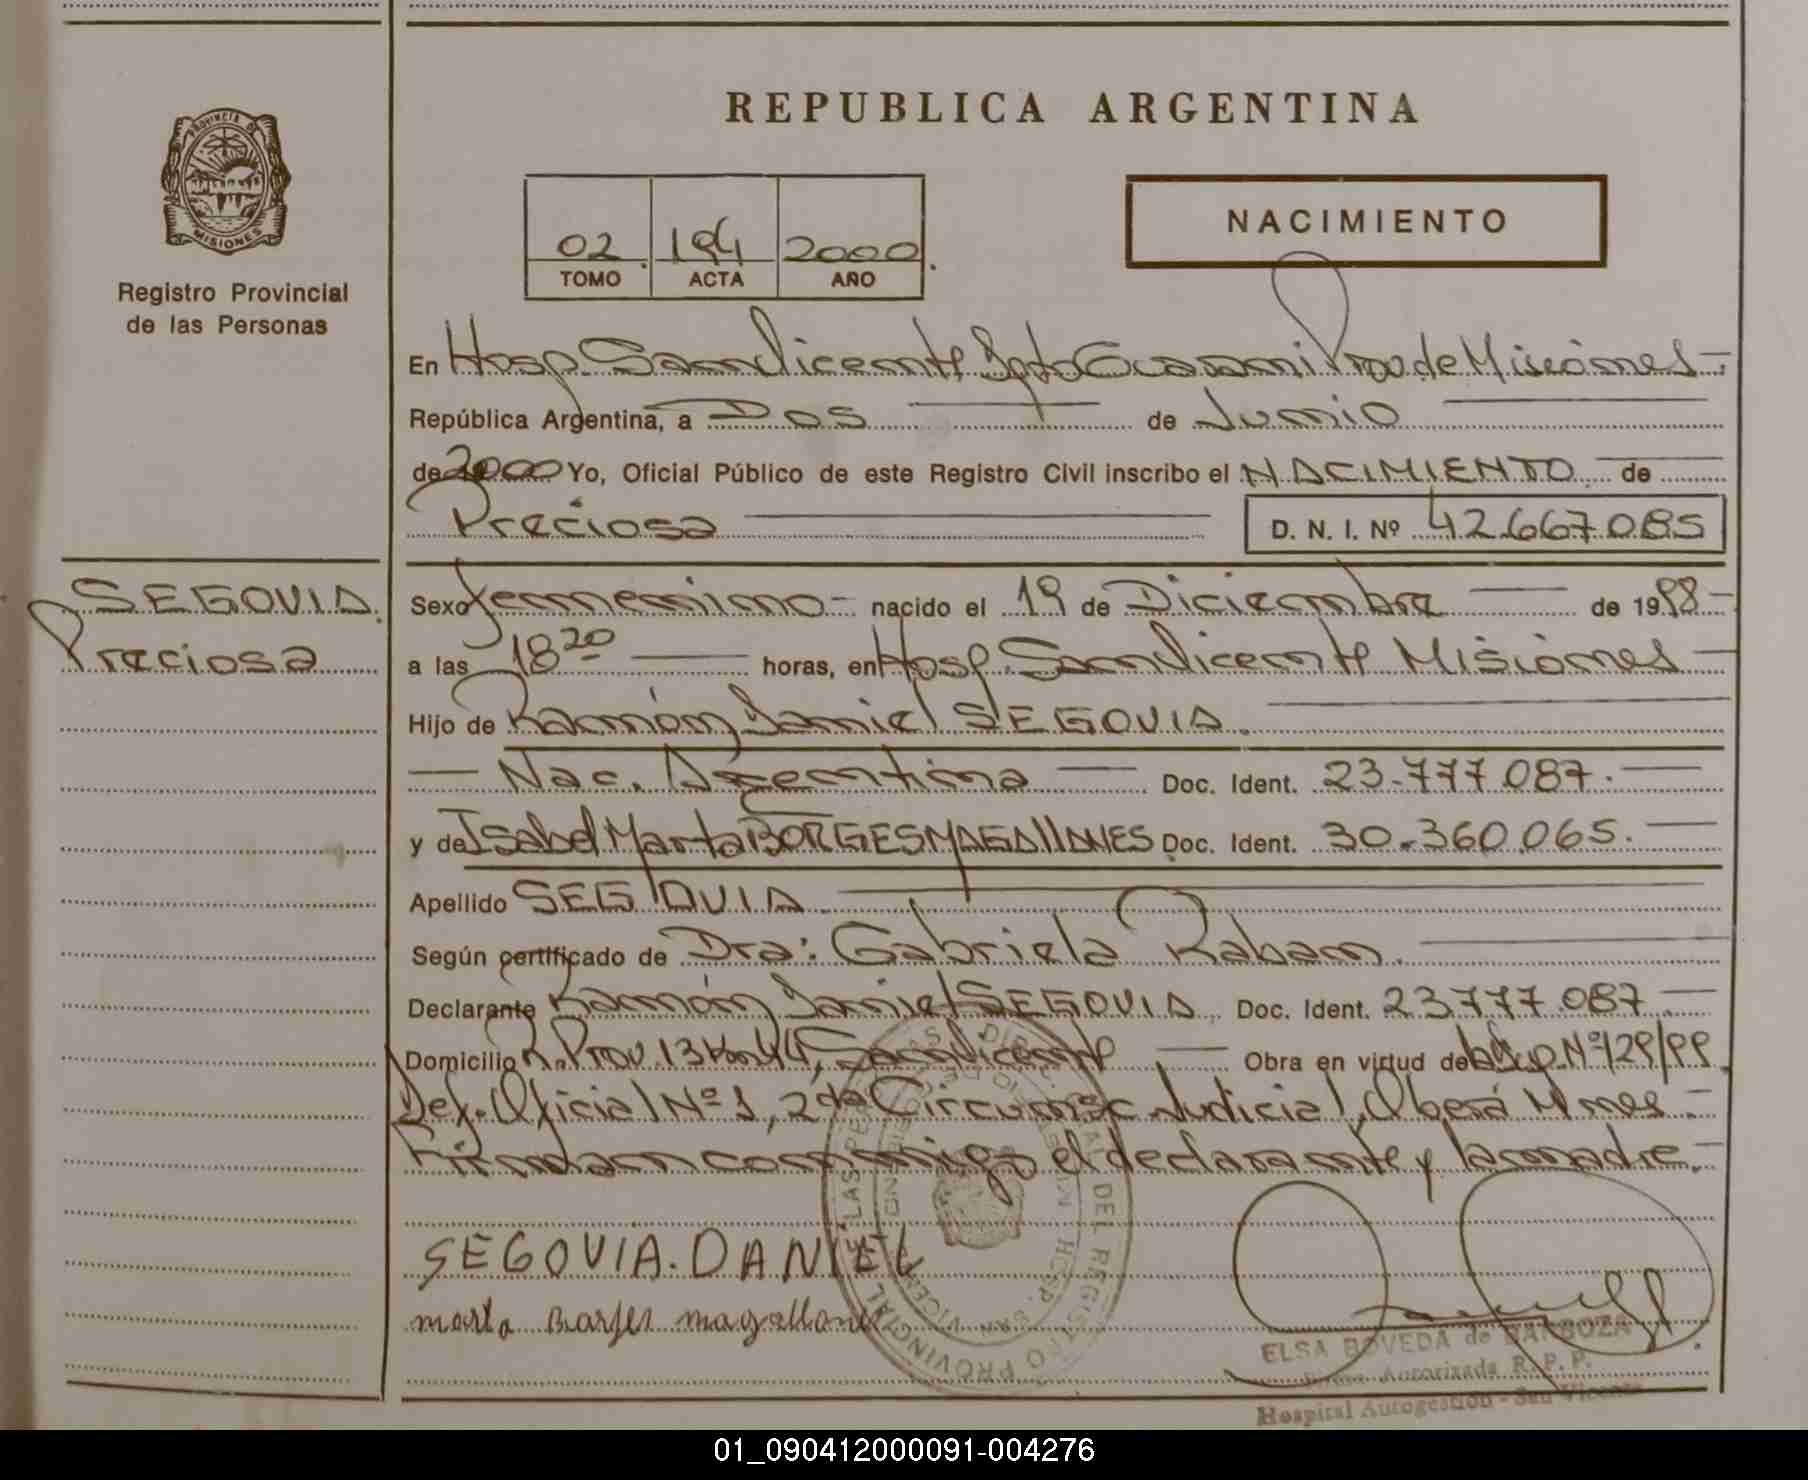 REPUBLICA ARGENTINA
PROVINCIA DE
MISIONES
Registro Provincial
de las Personas
02. 194 2000.
TOMO ACTA AÑO
NACIMIENTO
En Hosp. San Vicente Dpto Guaraní Prov de Misiones
República Argentina, a Dos de Junio
de 2000 Yo, Oficial Público de este Registro Civil inscribo el NACIMIENTO de
Preciosa D. N. I. Nº 42.667.085
SEGOVIA.
Preciosa
Sexo femenino nacido el 19 de Diciembre de 1998
a las 18 20 horas, en Hosp. San Vicente Misiones
Hijo de Ramón Daniel SEGOVIA.
Nac. Argentina Doc. Ident. 23.777.087.
y de Isabel Marta BORGES MAGALLANES Doc. Ident. 30.360.065.
Apellido SEGOVIA
Según certificado de Dra: Gabriela Raban.
Declarante Ramón Daniel SEGOVIA Doc. Ident. 23.777.087
Domicilio R. Prov. 13 Km 44, San Vicente Obra en virtud de Nº 129/99
Def. Oficial Nº 1, 2da Circunsc Judicial, Oberá Mnes.
Firman conmigo el declarante y la madre.
SEGOVIA. DANIEL
marta magallanes
ELSA BOVEDA de BARBOZA
Autorizada R. P. P.
Hospital Autogestión - San Vicente
01_090412000091-004276